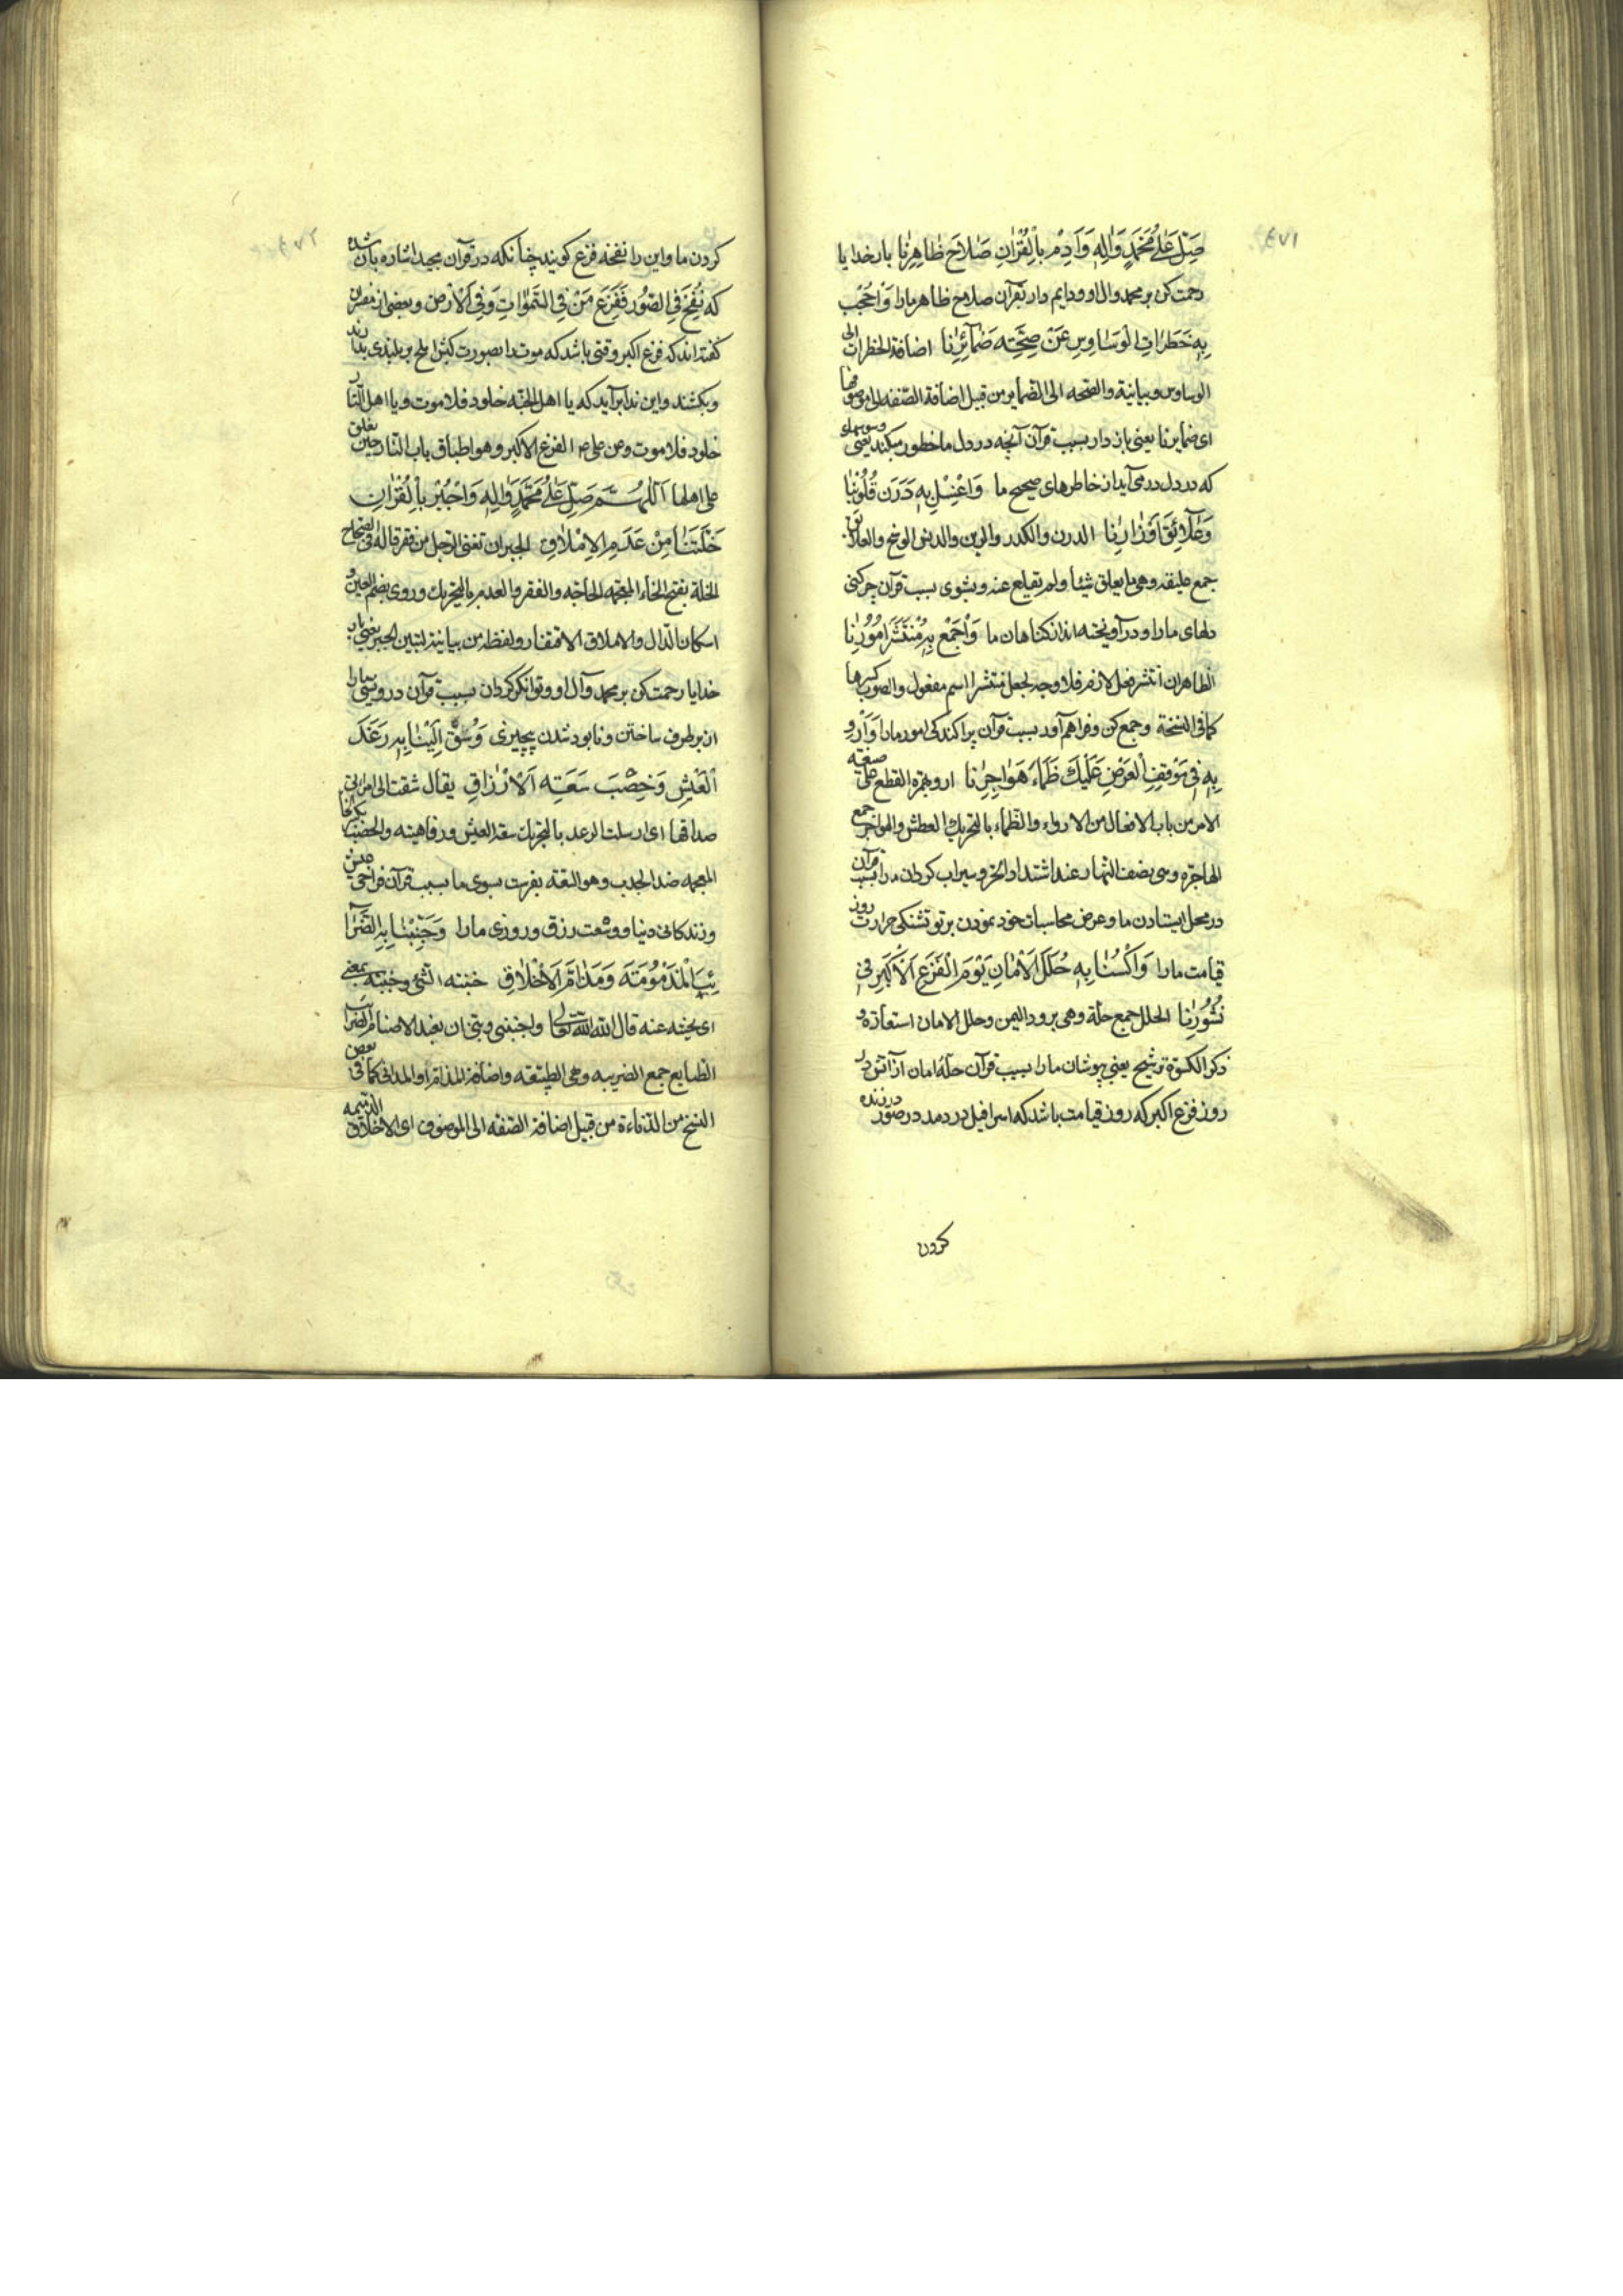 ٤٧١
صَلِّ عَلىٰ مُحَمَّدٍ وَاٰلِهِ وَاَدِمْ بِالْقُرْاٰنِ صَلاٰحَ ظٰاهِرِنٰا بار خدایا
رحمت کن بر محمد وال او ودایم دار بقرآن صلاح ظاهر مارا وَاحْجُبْ
بِهِ خَطَرٰاتِ الْوَسٰاوِسِ عَنْ صِحَّتِهِ ضَمٰآئِرِنٰا اضافة الخطرات الی
الوساوس وبیانیة والصحه الی الضمایر من قبیل اضافة الصّفه الی موصوفها
ای ضمایرنا یعنی باز دار بسبب قرآن آنچه در دل ما خطور میکند یعنی وسوسهای
که در دل در می آید از خاطرهای صحیح ما وَاغْسِلْ بِهِ دَرَنَ قُلُوبِنٰا
وَعَلٰآئِقَ اَوْزٰارِنٰا الدرن والکدر والرین والدنس الوسخ والعلائق
جمع علیقه وهی ما یعلق شیئا ولم یقلع عنه وبشوی بسبب قرآن چرکنی
دلهای مارا ودر آویخته از کناهان ما وَاجْمَعْ بِهِ مُنْتَشَرَ اُمُورِنٰا
الظاهر ان انتشر فعل لازم فلا وجه لجعل منتشر اسم مفعول والصوب کسرها
کما فی النسخة وجمع کن وفراهم آور بسبب قرآن پراکندکی امور مارا وَاَرْوِ
بِهِ فی مَوْقِفِ الْعَرْضِ عَلَیْكَ ظَمَاءَ هَوٰاجِرِنٰا ارو بهمزة القطع علی صیغه
الامر من باب الافعال من الارواء والظماء بالتحریك العطش والهواجر جمع
الهاجرة وهی نصف النهار عند اشتداد الحرّ وسیراب کردان مارا بسبب قرآن
در محل ایستادن ما وعرض محاسبات خود نمودن بر تو تشنکی حرارت روز
قیامت مارا وَاکْسُنٰا بِهِ حُلَلَ الْاَمٰانِ یَوْمَ الْفَزَعِ الْاَکْبَرِ فی
نُشُورِنٰا الحلل جمع حلّة وهی برود الیمن وحلل الامان استعاره و
ذکر الکسوة ترشیح یعنی بپوشان مارا بسبب قرآن حلّهٔ امان از آتش در
روز فزع اکبر که روز قیامت باشد که اسرافیل در دمد در صور در زنده
کردن
٤٧٢
کردن ما واین را نفخه فزع کویند چنانکه در قرآن مجید اشاره بآن شده
که نُفِخَ فِی الصُّورِ فَفَزِعَ مَنْ فِی السَّمٰوٰاتِ وَفِی الْاَرْضِ وبعضی از مفسران
کفته اند که فزع اکبر وقتی باشد که موت را بصورت کبش املح بر بلندی بدارند
وبکشند واین ندا برآید که یا اهل الجنّه خلود فلا موت ویا اهل النّار
خلود فلا موت وعن علی ع الفزع الاکبر وهو اطباق باب النار حین یغلق
علی اهلها اَللّٰهُمَّ صَلِّ عَلىٰ مُحَمَّدٍ وَاٰلِهِ وَاجْبُرْ بِالْقُرْاٰنِ
خَلَّتَنٰا مِنْ عَدَمِ الْاِمْلٰاقِ الجبر ان تغنی الرجل من فقر قاله فی الصحاح
الخلة بفتح الخاء المعجمه الحاجه والفقر والعدم بالتحریك وروی بضم العین و
اسکان الدال والاملاق الافتقار ولفظه من بیانیة لتبین الجبر یعنی بار
خدایا رحمت کن بر محمد وآل او وتوانکر کردان بسبب قرآن درویشی مارا
از برطرف ساختن ونابود شدن بیچیزی وَسُقْ اِلَیْنٰا بِهِ رَغَدَ
الْعَیْشِ وَخِصْبَ سَعَتِهِ الْاَرْزٰاقِ یقال سقت الی امراتی
صداقها ای ارسلت الرغد بالتحریك سعة العیش ورفاهیته والخصب بکسر الخا
المعجمه ضد الجدب وهو السّعة بفرست بسوی ما بسبب قرآن فراخی عیش
وزندکانی دنیا ووسعت رزق وروزی مارا وَجَنِّبْنٰا بِهِ الضَّرٰآ
ئِبَ الْمَذْمُومَةَ وَمَدٰانِیَ الْاَخْلٰاقِ جنبته الشئ وجنبته بمعنی
ای نحیته عنه قال الله تعالی واجنبنی وبنی ان نعبد الاصنام الضرایب
الطبایع جمع الضریبه وهی الطبیعه واضافة المذام او المدانی کما فی بعض
النسخ من الدناءة من قبیل اضافة الصّفه الی الموصوف ای الاخلاق الذمیمه